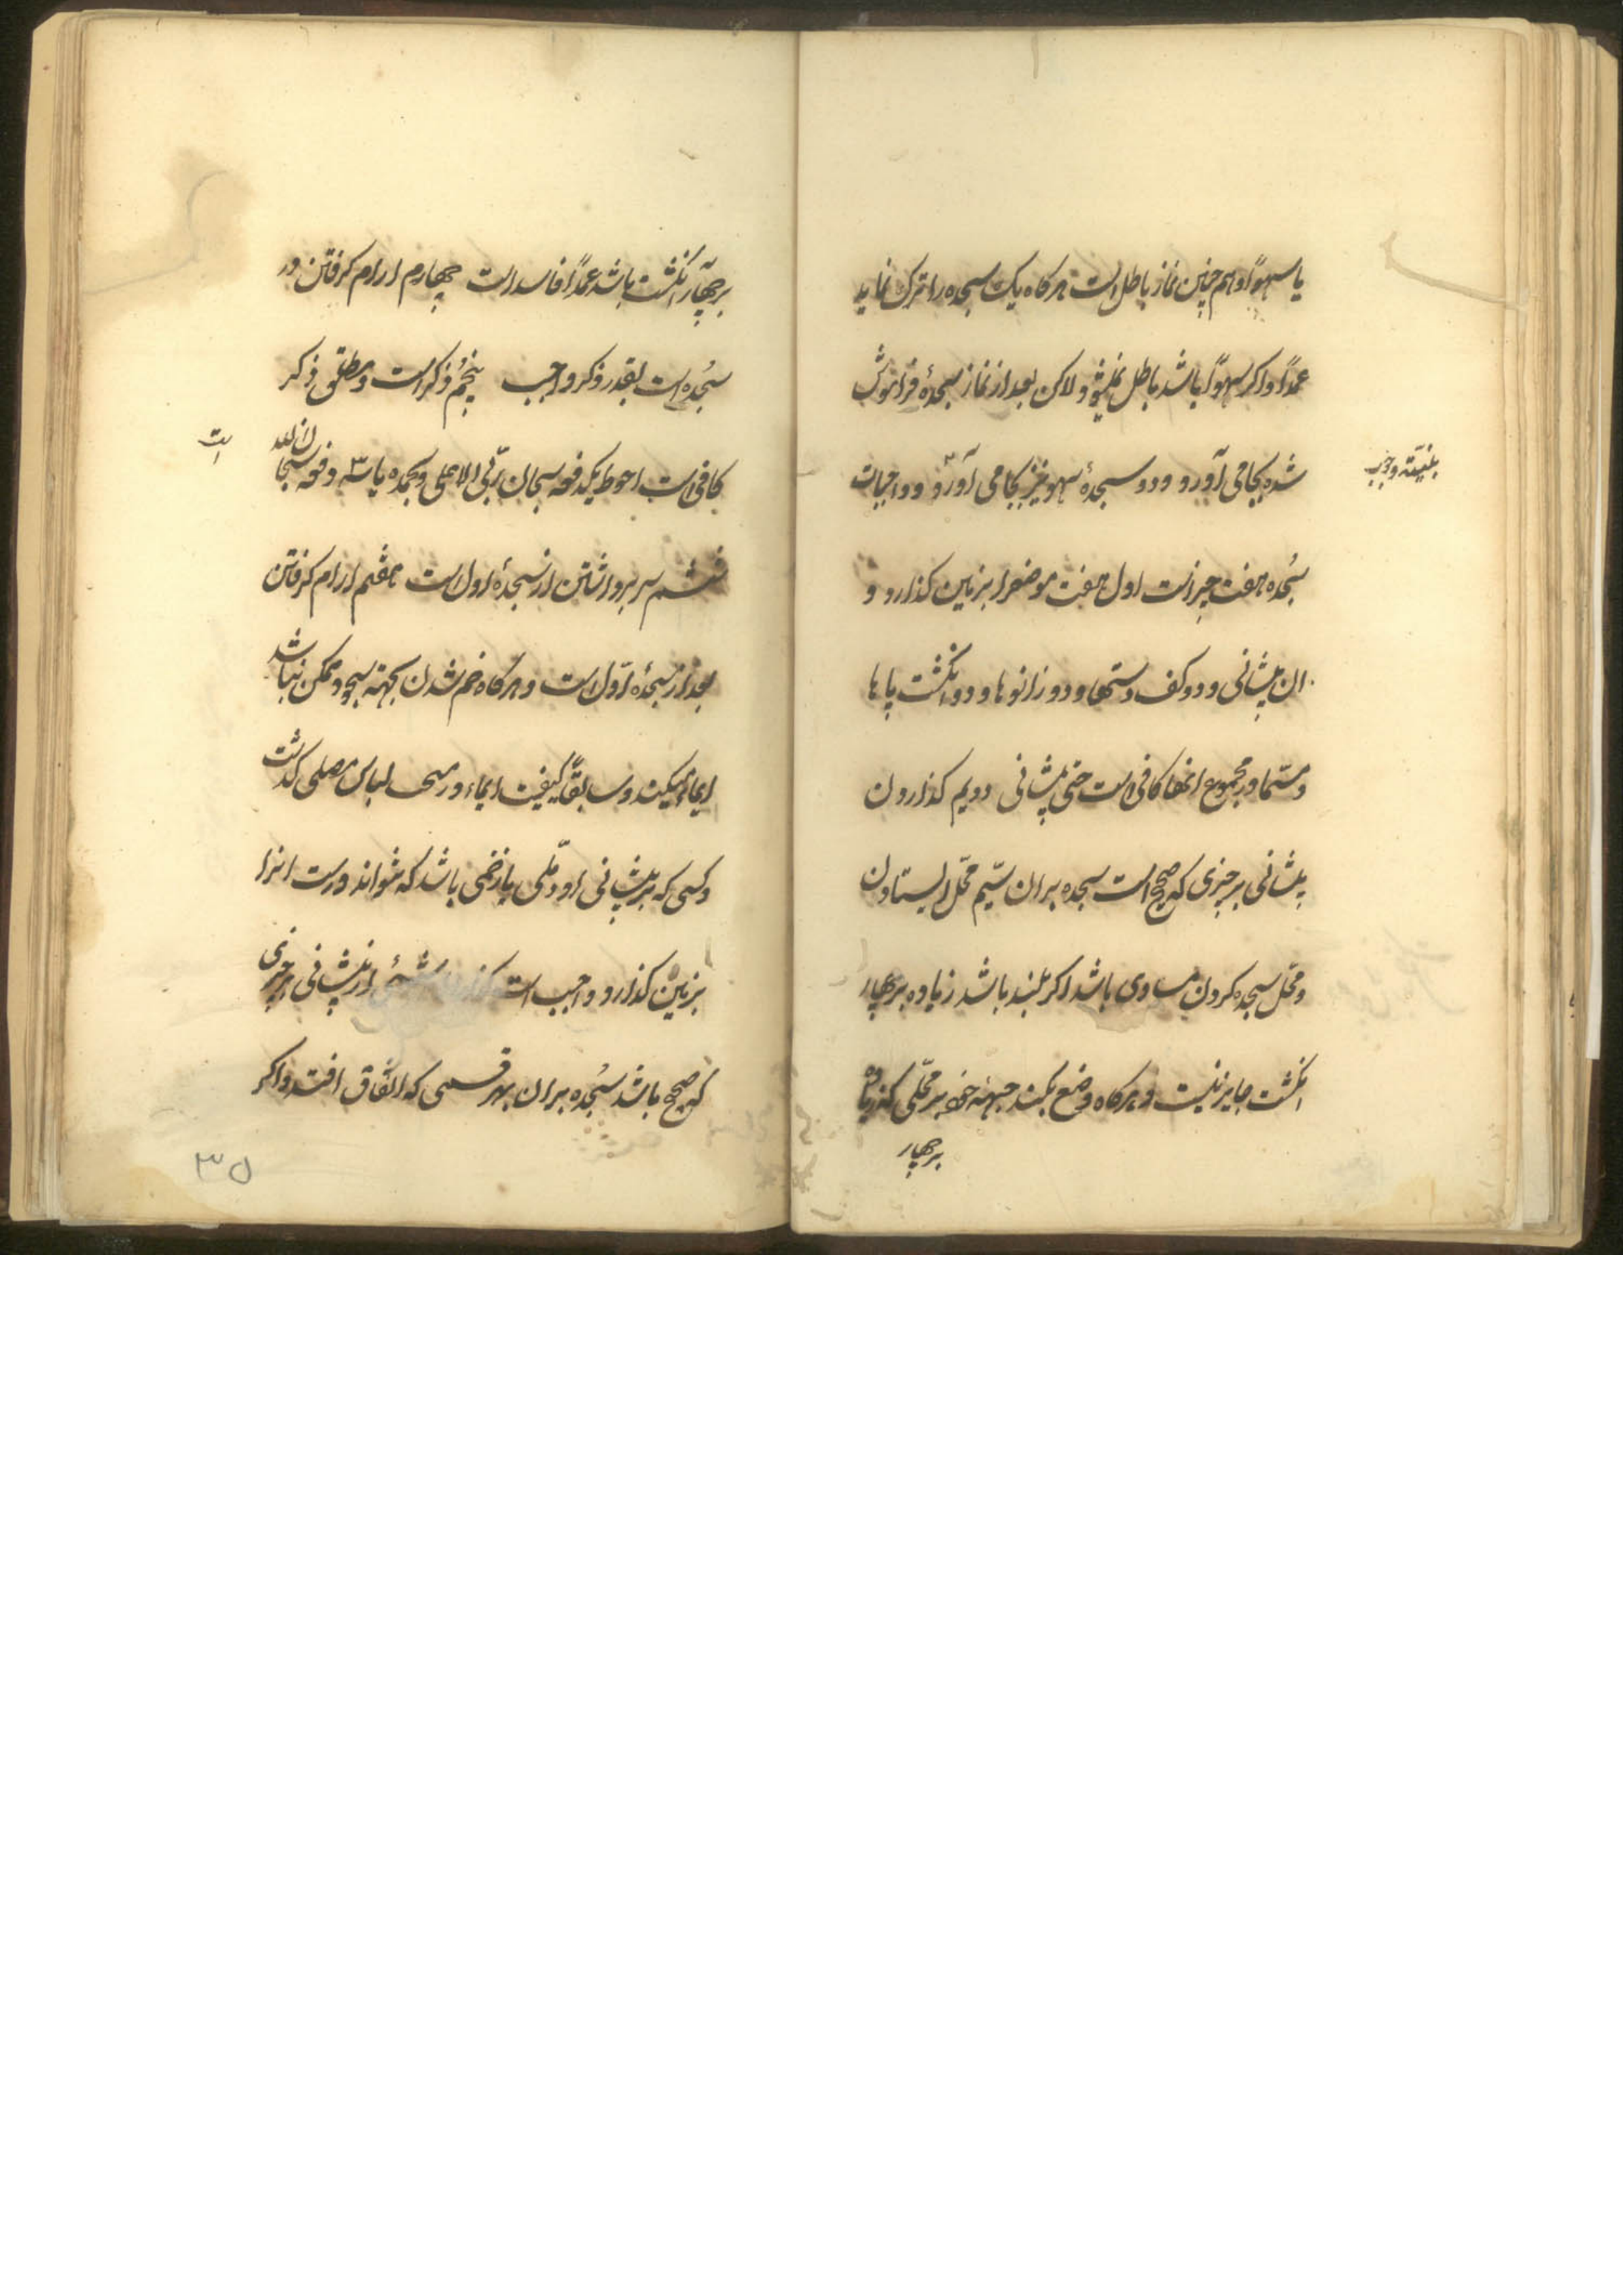 یا سهوًا و هم چنین نماز باطل است هر کاه یک سجده را ترک نماید
عمدًا و اکر سهوًا باشد باطل نمیشود و لاکن بعد از نماز سجدهٔ فراموش
شده بجا می آورد و دو سجدهٔ سهو نیز بجا می آورد و واجبات
بنیّته وجوب
سجده هفت چیز است اول هفت موضع را بزمین کذارد و
ان پیشانی و دو کف دستها و دو زانوها و دو انکشت پاها
و مسّما در مجموع انها کافی است حتی پیشانی دویم کذاردن
پیشانی بر چیزی که صحیح است سجده بر ان سیّم محّل ایستادن
و محّل سجده کردن مساوی باشد اکر بلند باشد زیاده بر چهار
انکشت جایز نیست و هر کاه وضع بکند جبههٔ خود بر محّلی که زیاده
بر چهار
بر چهار انکشت باشد عمدًا فاسد است چهارم ارام کرفتن در
سجده است بقدر ذکر واجب پنجم ذکر است و مطلق ذکر
کافی است احوط یکدفعه سبحان ربّی الاعلی و بحمده یا سه دفعه سبحان الله
است
ششم سر برداشتن از سجدهٔ اول است هفتم ارام کرفتن
بعد از سجدهٔ اوّل است و هر کاه خم شدن بجهة سجود ممکن نباشد
ایماء میکند و سابقًا کیفیت ایماء در مبحث لباس مصلی کذشت
و کسی که بر پیشانی او دمّلی یا زخمی باشد که نتواند درست انرا
بزمین کذارد واجب است کذاردن شیئی از پیشانی بر چیزی
که صحیح باشد سجده بر ان بهر قسمی که اتّفاق افتد و اکر
۳۵